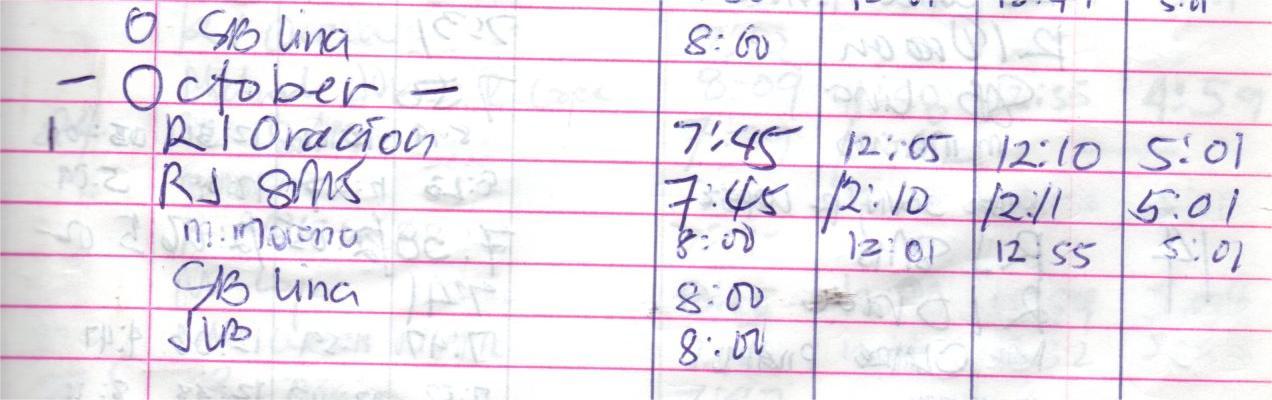 O SB lina 8:00
- October -
1 R I Oracion 7:45 12:05 12:10 5:01
RJ 7:45 12:10 12:11 5:01
m. moreno 8:00 12:01 12:55 5:01
SB lina 8:00
JVB 8:00